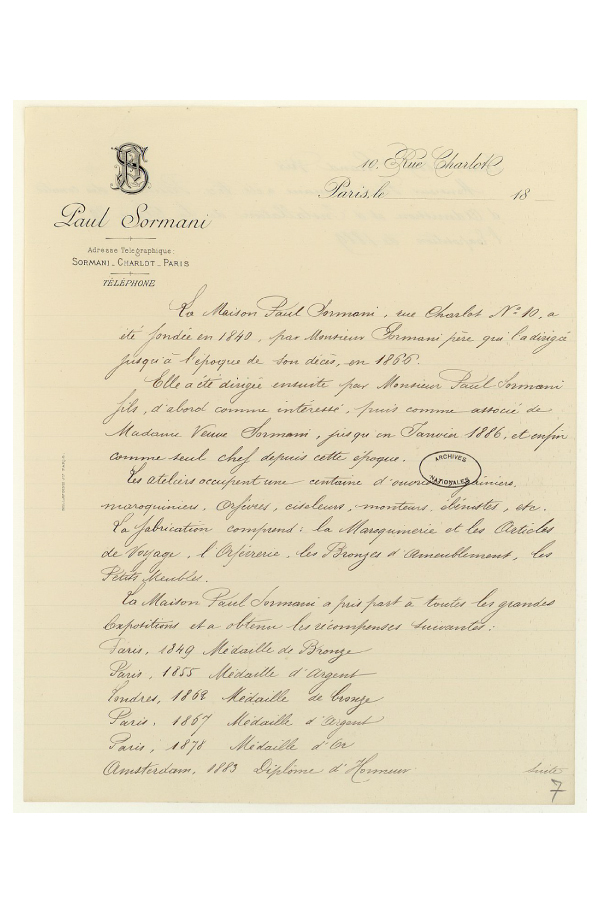 PS
10, Rue Charlot
Paris, le 18
Paul Sormani
Adresse Télégraphique:
SORMANI_CHARLOT_PARIS
TÉLÉPHONE
La Maison Paul Sormani, rue Charlot No 10, a
été fondée en 1840, par Monsieur Sormani père qui l'a dirigée
jusqu'à l'époque de son décès, en 1866.
Elle a été dirigée ensuite par Monsieur Paul Sormani
fils, d'abord comme intéressé, puis comme associé de
Madame Veuve Sormani, jusqu'en Janvier 1886, et enfin
comme seul chef depuis cette époque.
ARCHIVES
NATIONALES
Les ateliers occupent une centaine d'ouvriers gainiers,
maroquiniers, Orfèvres, ciseleurs, monteurs, ébénistes, etc.
La fabrication comprend: la Maroquinerie et les Articles
de Voyage, l'Orfèvrerie, les Bronzes d'Ameublement, les
Petits Meubles.
La Maison Paul Sormani a pris part à toutes les grandes
Expositions et a obtenu les récompenses suivantes:
Paris, 1849 Médaille de Bronze
Paris, 1855 Médaille d'Argent
Londres, 1862 Médaille de bronze
Paris, 1867 Médaille d'Argent
Paris, 1878 Médaille d'Or
Amsterdam, 1883 Diplôme d'Honneur
Suite
7